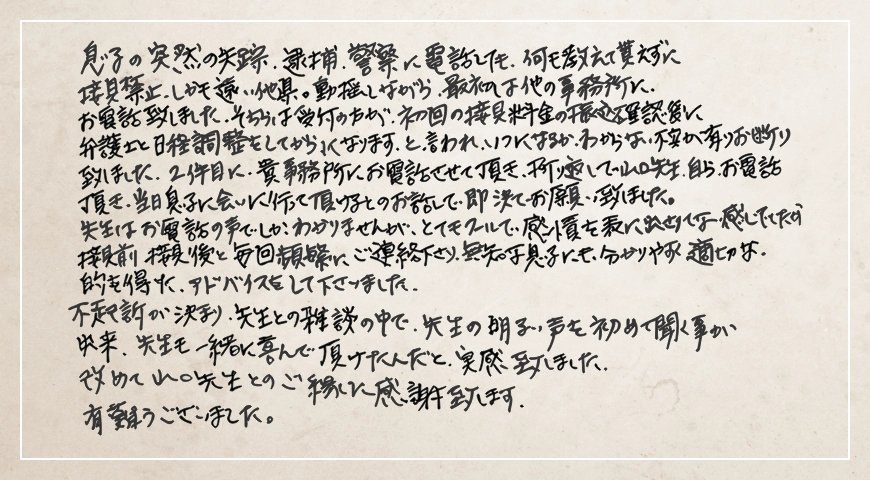 息子の突然の失踪、逮捕、警察に電話しても、何も教えて貰えずに
接見禁止、しかも遠い他県。動揺しながら、最初は他の事務所に、
お電話致しました。そちらは受付の方が、初回の接見料金の振込確認後に
弁護士と日程調整をしてからになります。と、言われ、いつになるか、わからない不安が有りお断り
致しました。2件目に、貴事務所にお電話させて頂き、折り返しで山口先生、自ら、お電話
頂き、当日息子に会いに行って頂けるとのお話しで、即決でお願い致しました。
先生はお電話の声でしか、わかりませんが、とてもクールで、感情を表に出さない感じでしたが
接見前、接見後と毎回頻繁に、ご連絡下さり、無知な息子にも、分かりやすく適切な、
的を得た、アドバイスをして下さいました。
不起訴が決まり、先生との雑談の中で、先生の明るい声を初めて聞く事が
出来、先生も一緒に喜んで頂けたんだと、実感致しました。
改めて山口先生とのご縁に感謝致します。
有難うございました。